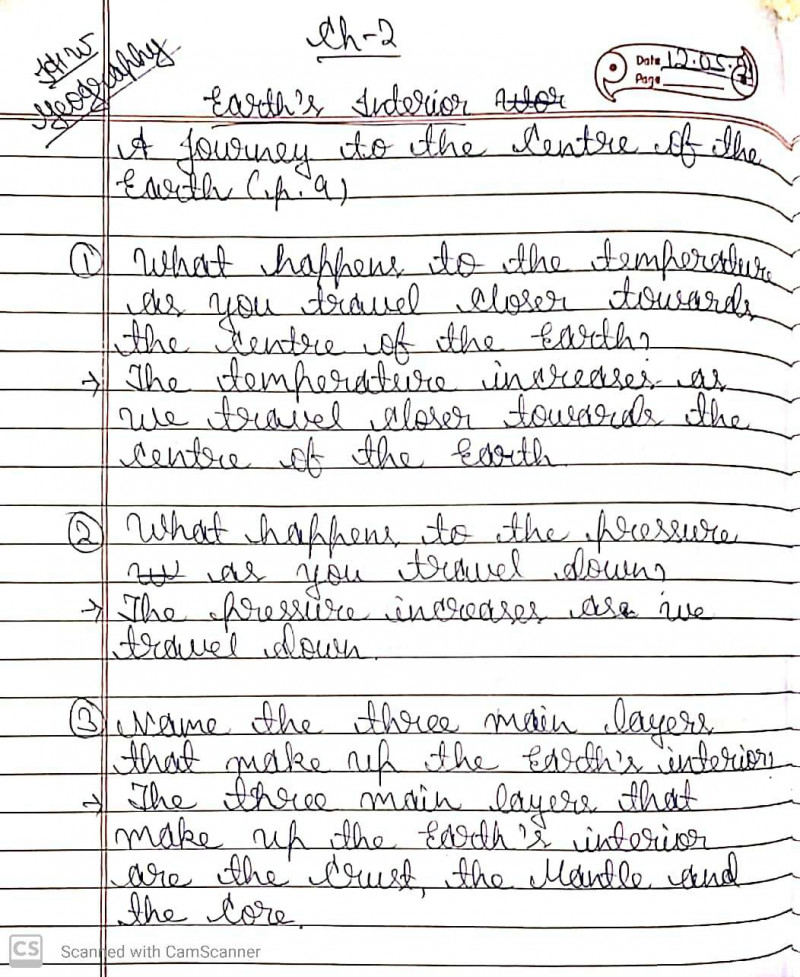 H.W
Geography
Ch-2
Date 12.05.
Page
Earth's Interior
A Journey to the Centre of the
Earth (p.9)
① What happens to the temperature
as you travel closer towards
the Centre of the Earth?
→ The temperature increases as
we travel closer towards the
centre of the Earth
② What happens to the pressure
as you travel down?
→ The pressure increases as we
travel down.
③ Name the three main layers
that make up the Earth's interior?
→ The three main layers that
make up the Earth's interior
are the Crust, the Mantle and
the Core.
CS Scanned with CamScanner